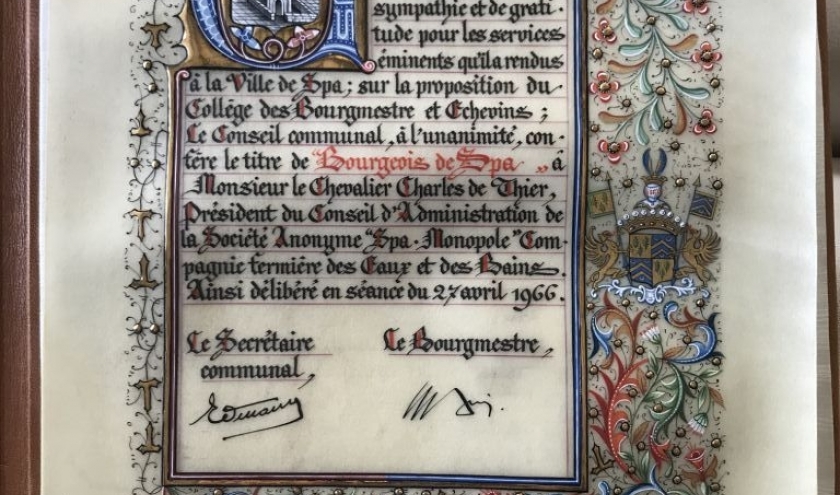 sympathie et de grati-
tude pour les services
éminents qu'il a rendus
à la Ville de Spa; sur la proposition du
Collège des Bourgmestre et Echevins;
Le Conseil communal, à l'unanimité, con-
fère le titre de "Bourgeois de Spa" à
Monsieur le Chevalier Charles de Thier,
Président du Conseil d'Administration de
la Société Anonyme "Spa-Monopole" Com-
pagnie fermière des Eaux et des Bains.
Ainsi délibéré en séance du 27 avril 1966.
Le Secrétaire
communal,
Le Bourgmestre,